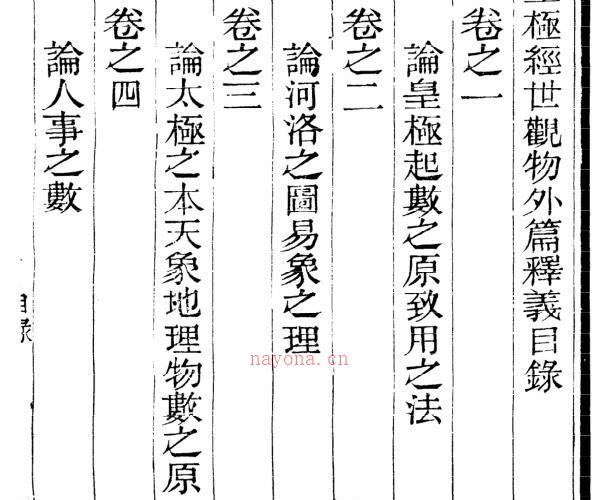 極經世觀物外篇釋義目錄
卷之一
論皇極起數之原致用之法
卷之二
論河洛之圖易象之理
卷之三
論太極之本天象地理物數之原
卷之四
論人事之數
目錄
nayona.cn